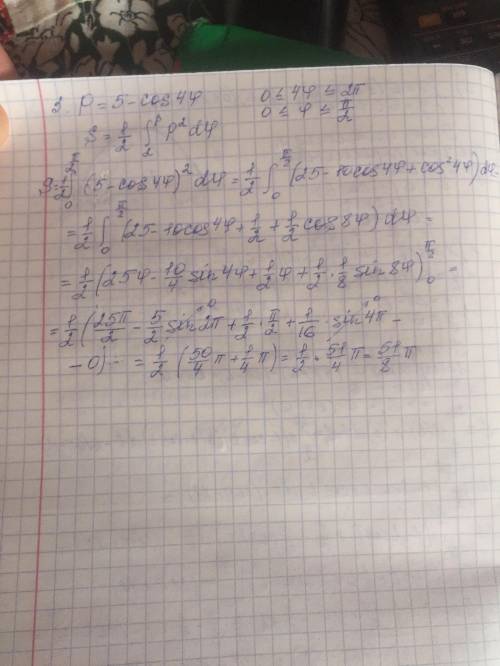 3. ρ = 5 - cos4φ 0 ≤ 4φ ≤ 2π
0 ≤ φ ≤ π/2
S = 1/2 ∫ ρ² dφ
S = 1/2 ∫₀ (5 - cos4φ)² dφ = 1/2 ∫₀^{π/2} (25 - 10cos4φ + cos²4φ) dφ =
= 1/2 ∫₀^{π/2} (25 - 10cos4φ + 1/2 + 1/2 cos8φ) dφ =
= 1/2 (25φ - 10/4 sin4φ + 1/2 φ + 1/2 · 1/8 sin8φ)₀^{π/2} =
= 1/2 (25π/2 - 5/2 sin2π + 1/2 · π/2 + 1/16 · sin4π -
- 0) = 1/2 (50/4 π + 1/4 π) = 1/2 · 51/4 π = 51/8 π